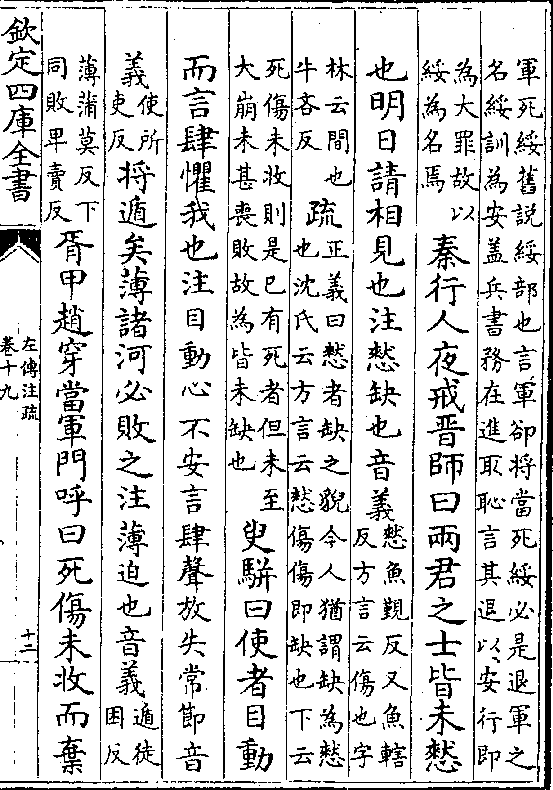 軍死綏舊説綏部也言軍卻将當死綏必是退軍之
名綏訓為安盖兵書務在進取恥言其退以安行即
為大罪故以
綏為名焉
秦行人夜戒晉師曰兩君之士皆未憖
也明日請相見也注憖缺也音義
憖魚覲反又魚轄
反方言云傷也字
林云間也
牛吝反
疏
正義曰憖者缺之貌今人猶謂缺為憖
也沈氏云方言云憖傷傷即缺也下云
死傷未收則是已有死者但未至
大崩未甚喪敗故為皆未缺也
臾駢曰使者目動
而言肆懼我也注目動心不安言肆聲放失常節音
義
使所
吏反
将遁矣薄諸河必敗之注薄迫也音義
遁徒
困反
薄蒲莫反下
同敗卑賣反
胥甲趙穿當軍門呼曰死傷未收而棄
欽定四庫全書
左傳注疏
卷十九
十二